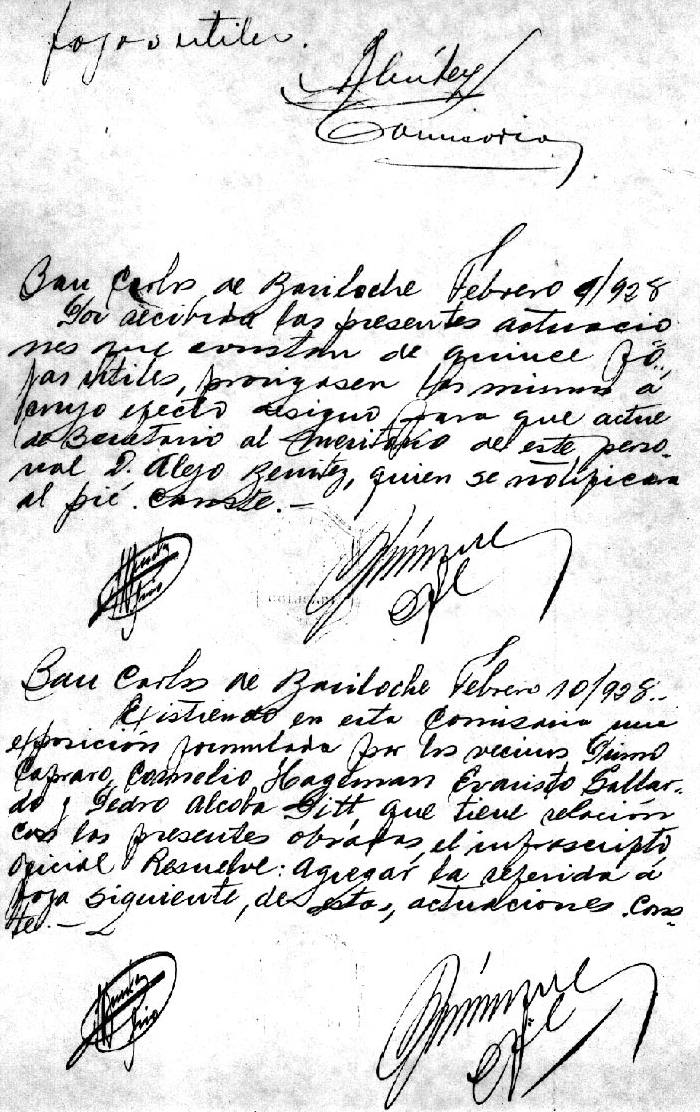 fojas utiles.
Comisario
San Carlos de Bariloche Febrero 9/928
Por recibida las presentes actuacio
nes que constan de quince fo-
jas utiles, prosigasen las mismas á
cuyo efecto designo para que actue
de Secretario al meritorio de este perso-
nal D. Alejo Benitez, quien se notificara
al pié. Conste.—
Of
San Carlos de Bariloche Febrero 10/928.-
Existiendo en esta Comisaria una
exposición formulada por los vecinos Primo
Capraro, Cornelio Hageman Evaristo Gallar-
do y Pedro Alcoba Pitt que tiene relación
con las presentes obradas, el infrascripto
oficial Resuelve: Agregar la referida á
foja siguiente, de estas, actuaciones. Cons-
te.—
Of